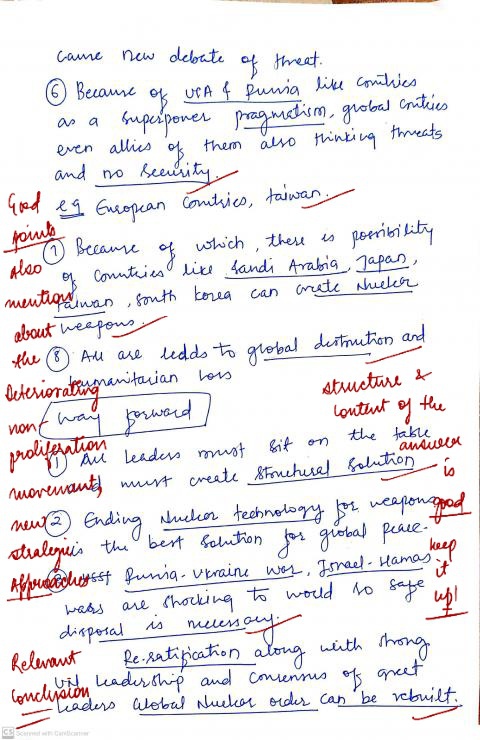 cause new debate of threat.
⑥ Because of USA & Russia like Contries
as a superpower pragmatism, global contries
even allies of them also thinking threats
and no security.
eg European Countries, taiwan.
⑦ Because of which, there is possibility
of Countries like Saudi Arabia, Japan,
taiwan, south korea can create Nuclear
weapons.
⑧ All are ledds to global distruction and
humanitarian loss
way forward
① All leaders must sit on the table
and must create Structural Solution
② Ending Nuclear technology for weapons
is the best solution for global peace.
Russia-Ukraine war, Israel-Hamas
wars are shocking to would so safe
disposal is necessary.
Re-ratification along with strong
UN leadership and consensus of great
leaders Global Nuclear order can be rebuilt.
Good
points
Also
mention
about
the
Deteriorating
non-
proliferation
movement,
new
strategic
Approaches
Relevant
Conclusion
structure &
content of the
answer
is
good
keep
it
up!
CS Scanned with CamScanner